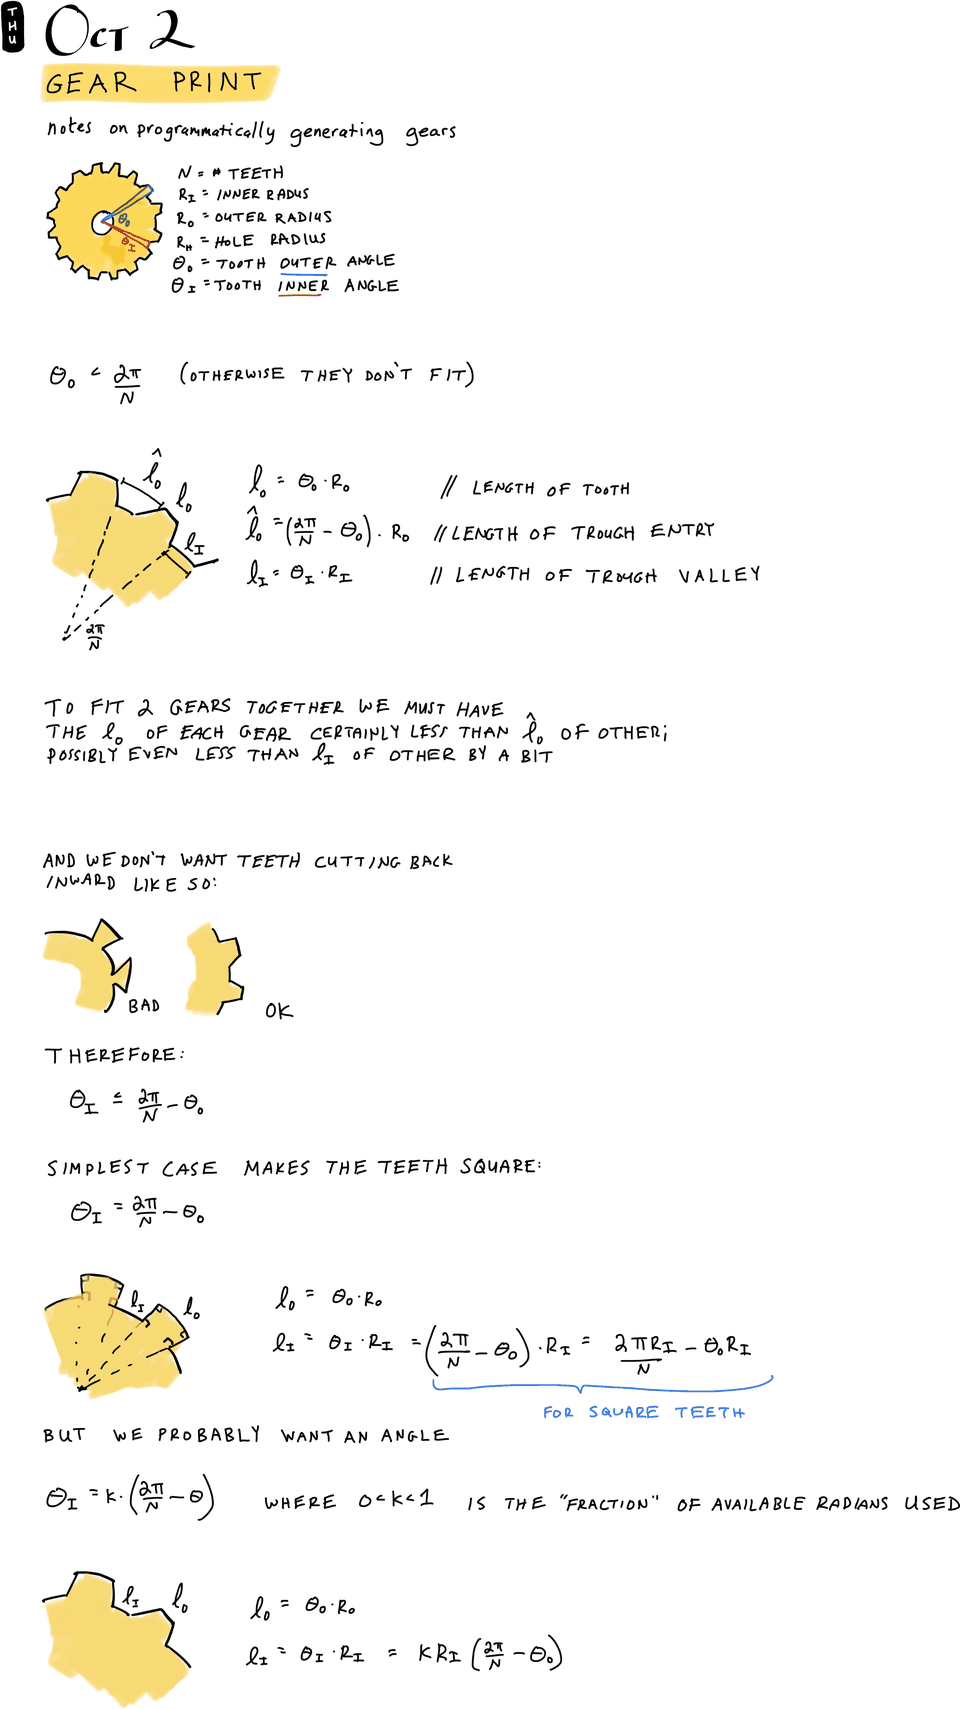 THU
OCT 2
GEAR PRINT
notes on programmatically generating gears
N = # TEETH
R_I = INNER RADUS
R_O = OUTER RADIUS
R_H = HOLE RADIUS
θ_O = TOOTH OUTER ANGLE
θ_I = TOOTH INNER ANGLE
θ_O
θ_I
θ_O < 2π/N (OTHERWISE THEY DON'T FIT)
l̂_O
l_O
l_I
2π/N
l_O = θ_O · R_O // LENGTH OF TOOTH
l̂_O = (2π/N - θ_O) · R_O // LENGTH OF TROUGH ENTRY
l_I = θ_I · R_I // LENGTH OF TROUGH VALLEY
TO FIT 2 GEARS TOGETHER WE MUST HAVE
THE l_O OF EACH GEAR CERTAINLY LESS THAN l̂_O OF OTHER;
POSSIBLY EVEN LESS THAN l_I OF OTHER BY A BIT
AND WE DON'T WANT TEETH CUTTING BACK
INWARD LIKE SO:
BAD
OK
THEREFORE:
θ_I ≤ 2π/N - θ_O
SIMPLEST CASE MAKES THE TEETH SQUARE:
θ_I = 2π/N - θ_O
l_I
l_O
l_O = θ_O · R_O
l_I = θ_I · R_I = (2π/N - θ_O) · R_I = 2πR_I/N - θ_O R_I
FOR SQUARE TEETH
BUT WE PROBABLY WANT AN ANGLE
θ_I = K · (2π/N - θ) WHERE 0<K<1 IS THE "FRACTION" OF AVAILABLE RADIANS USED
l_I
l_O
l_O = θ_O · R_O
l_I = θ_I · R_I = K R_I (2π/N - θ_O)